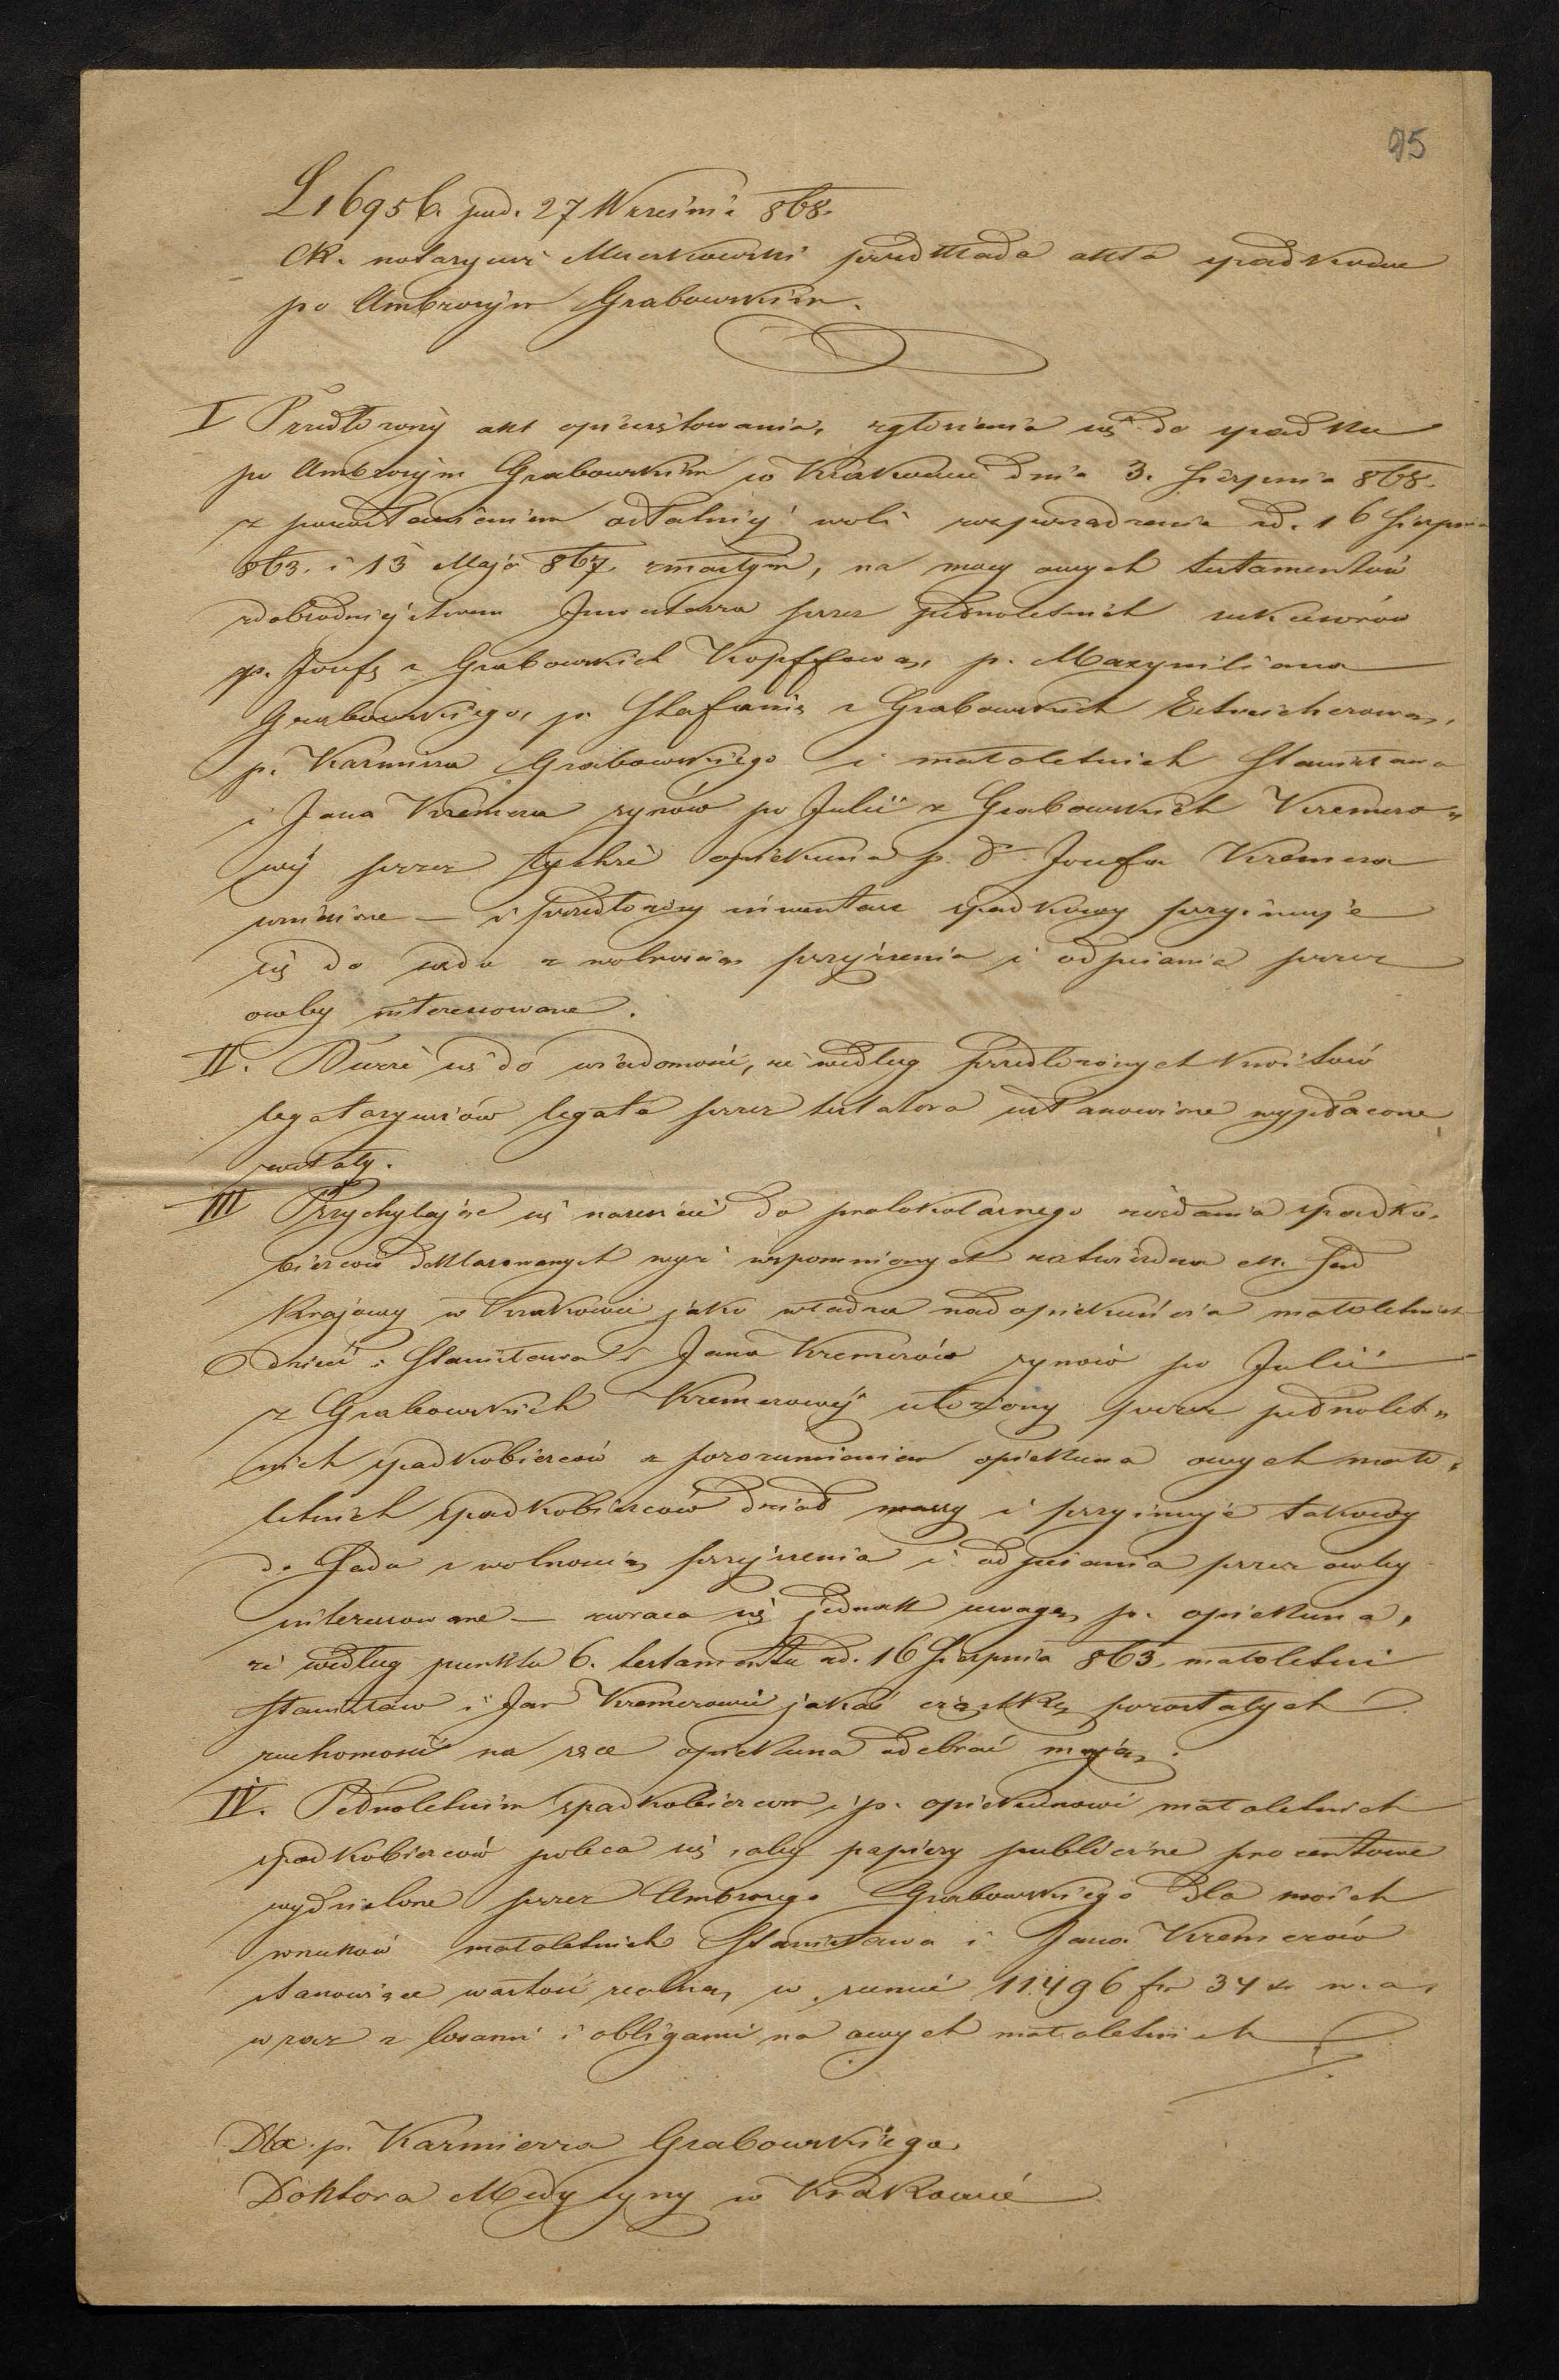 95
L 16956. pod. 27 Września 868.
CK. notaryusz Muczkowski przedkłada akta spadkowe
po Ambrożym Grabowskim.
I Przedłożony akt opieczętowania, zgłoszenia się do spadku
po Ambrożym Grabowskim w Krakowie dnia 3. Sierpnia 868.
z pozostawieniem ostatniej woli rozporządzenia dd. 16 Sierpnia
863. i 13 Maja 867. zmarłym, na mocy owych testamentów
z dobrodziejstwem Inwentarza przez pełnoletnich sukcesorów
p. Józefę z Grabowskich Kopffową, p. Maxymiliana
Grabowskiego, p. Stefanię z Grabowskich Estreicherową,
p. Kazmirza Grabowskiego i małoletnich Stanisława
i Jana Kremera synów po Julii z Grabowskich Kremero„
wéj przez tychże opiekuna p. Dr. Józefa Kremera
wniesione — i przedłożony inwentarz spadkowy przyimuje
się do sądu z wolnością przejrzenia i odpisania przez
osoby interesowane.
II. Bierze się do wiadomości, że według przedłożonych kwitów
legataryuszów legata przez testatora ustanowione wypłacone
zostały.
III Przychylając się nareszcie do protokolarnego żądania spadko„
bierców deklarowanych wyż wspomnionych zatwierdza ck. Sąd
Krajowy w Krakowie jako władza nadopiekuńcza małoletnich
dzieci: Stanisława i Jana Kremerów synów po Julii
z Grabowskich Kremerowéj ułożony przez pełnolet„
nich spadkobierców z porozumieniem opiekuna owych mało„
letnich spadkobierców dział massy i przyimuje takowy
do Sądu z wolnością przejrzenia i odpisania przez osoby
interesowane — zwraca się jednak uwagę p. opiekuna,
że według punktu 6. testamentu dd. 16 Sierpnia 863. małoletni
Stanisław i Jan Kremerowie jakąś cząstkę pozostałych
ruchomości na ręce opiekuna odebrać mają.
IV. Pełnoletnim spadkobiercom i p. opiekunowi małoletnich
spadkobierców poleca się, aby papiery publiczne procentowe
wydzielone przez Ambrożego Grabowskiego dla swoich
wnuków małoletnich Stanisława i Jana Kremerów
stanowiące wartość realną w sumie 11496 fr 34 xr w. a.
wraz z losami i obligami na owych małoletnich
Dla p. Kazmierza Grabowskiego
Doktora Medycyny w Krakowie